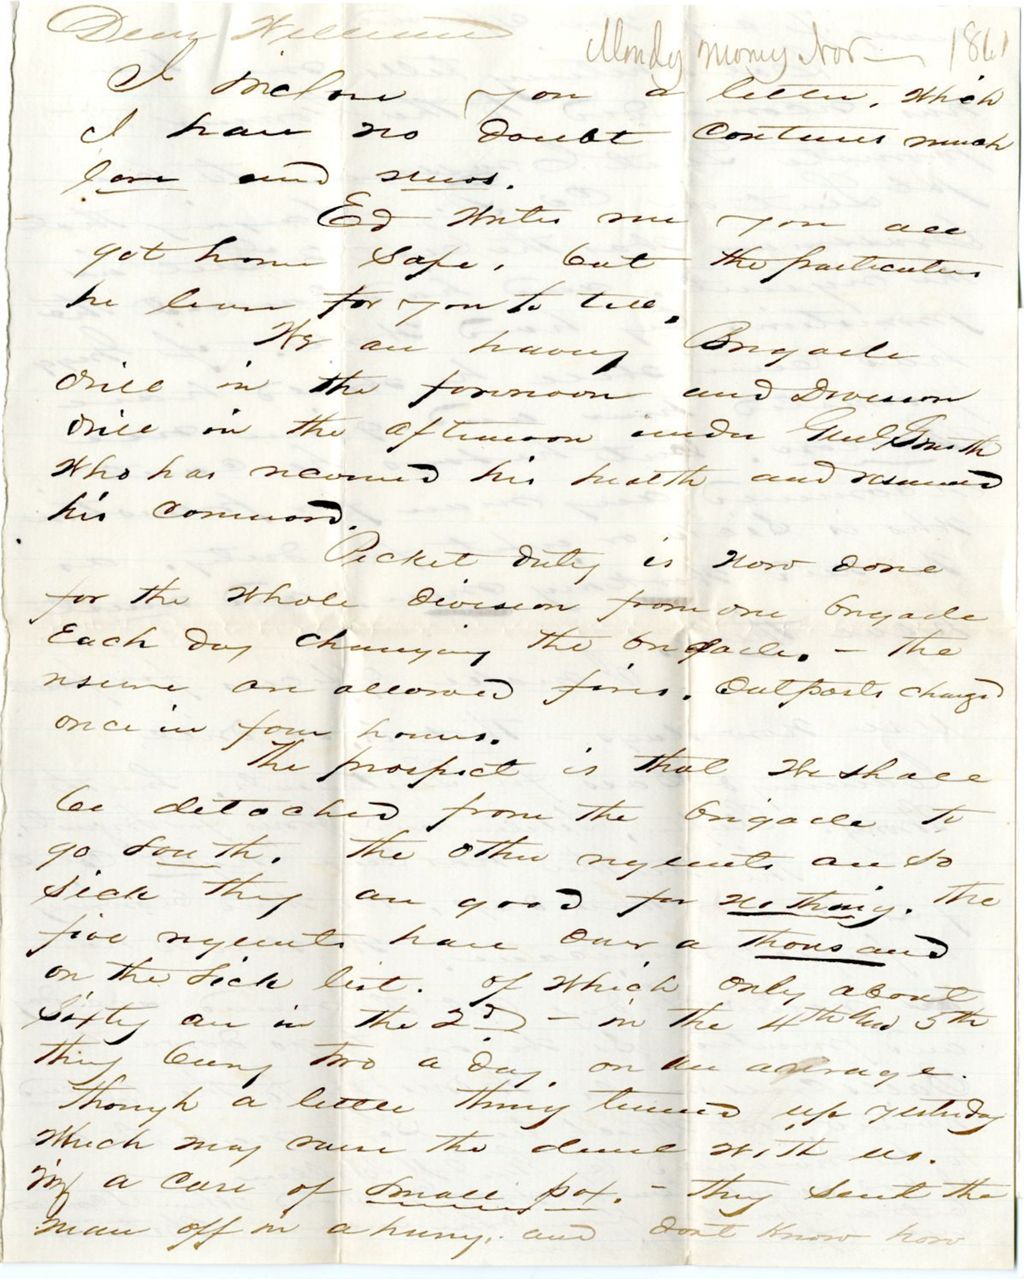 Dear William
Mondy morny Nov — 1861
I inclose you a letter, which
I have no doubt contains much
love and news.
Ed writes me you all
got home safe, but the particulars
he leaves for you to tell.
We are having Brigade
drill in the forenoon and Division
drill in the afternoon under Genl Smith
who has recovered his health and resumed
his command.
Picket duty is now done
for the whole division from one brigade
Each day changing the brigade. – the
reserve are allowed fires. Outposts changed
once in four hours.
The prospect is that we shall
be detached from the brigade to
go South. the other regiments are so
sick they are good for nothing. the
five regiments have over a thousand
on the sick list. of which only about
sixty are in the 2d – in the 4th and 5th
they bury two a day, on an average.
though a little thing turned up yesterday
which may raise the devil with us.
a case of small pox. – they sent the
man off in a hurry. and dont know how